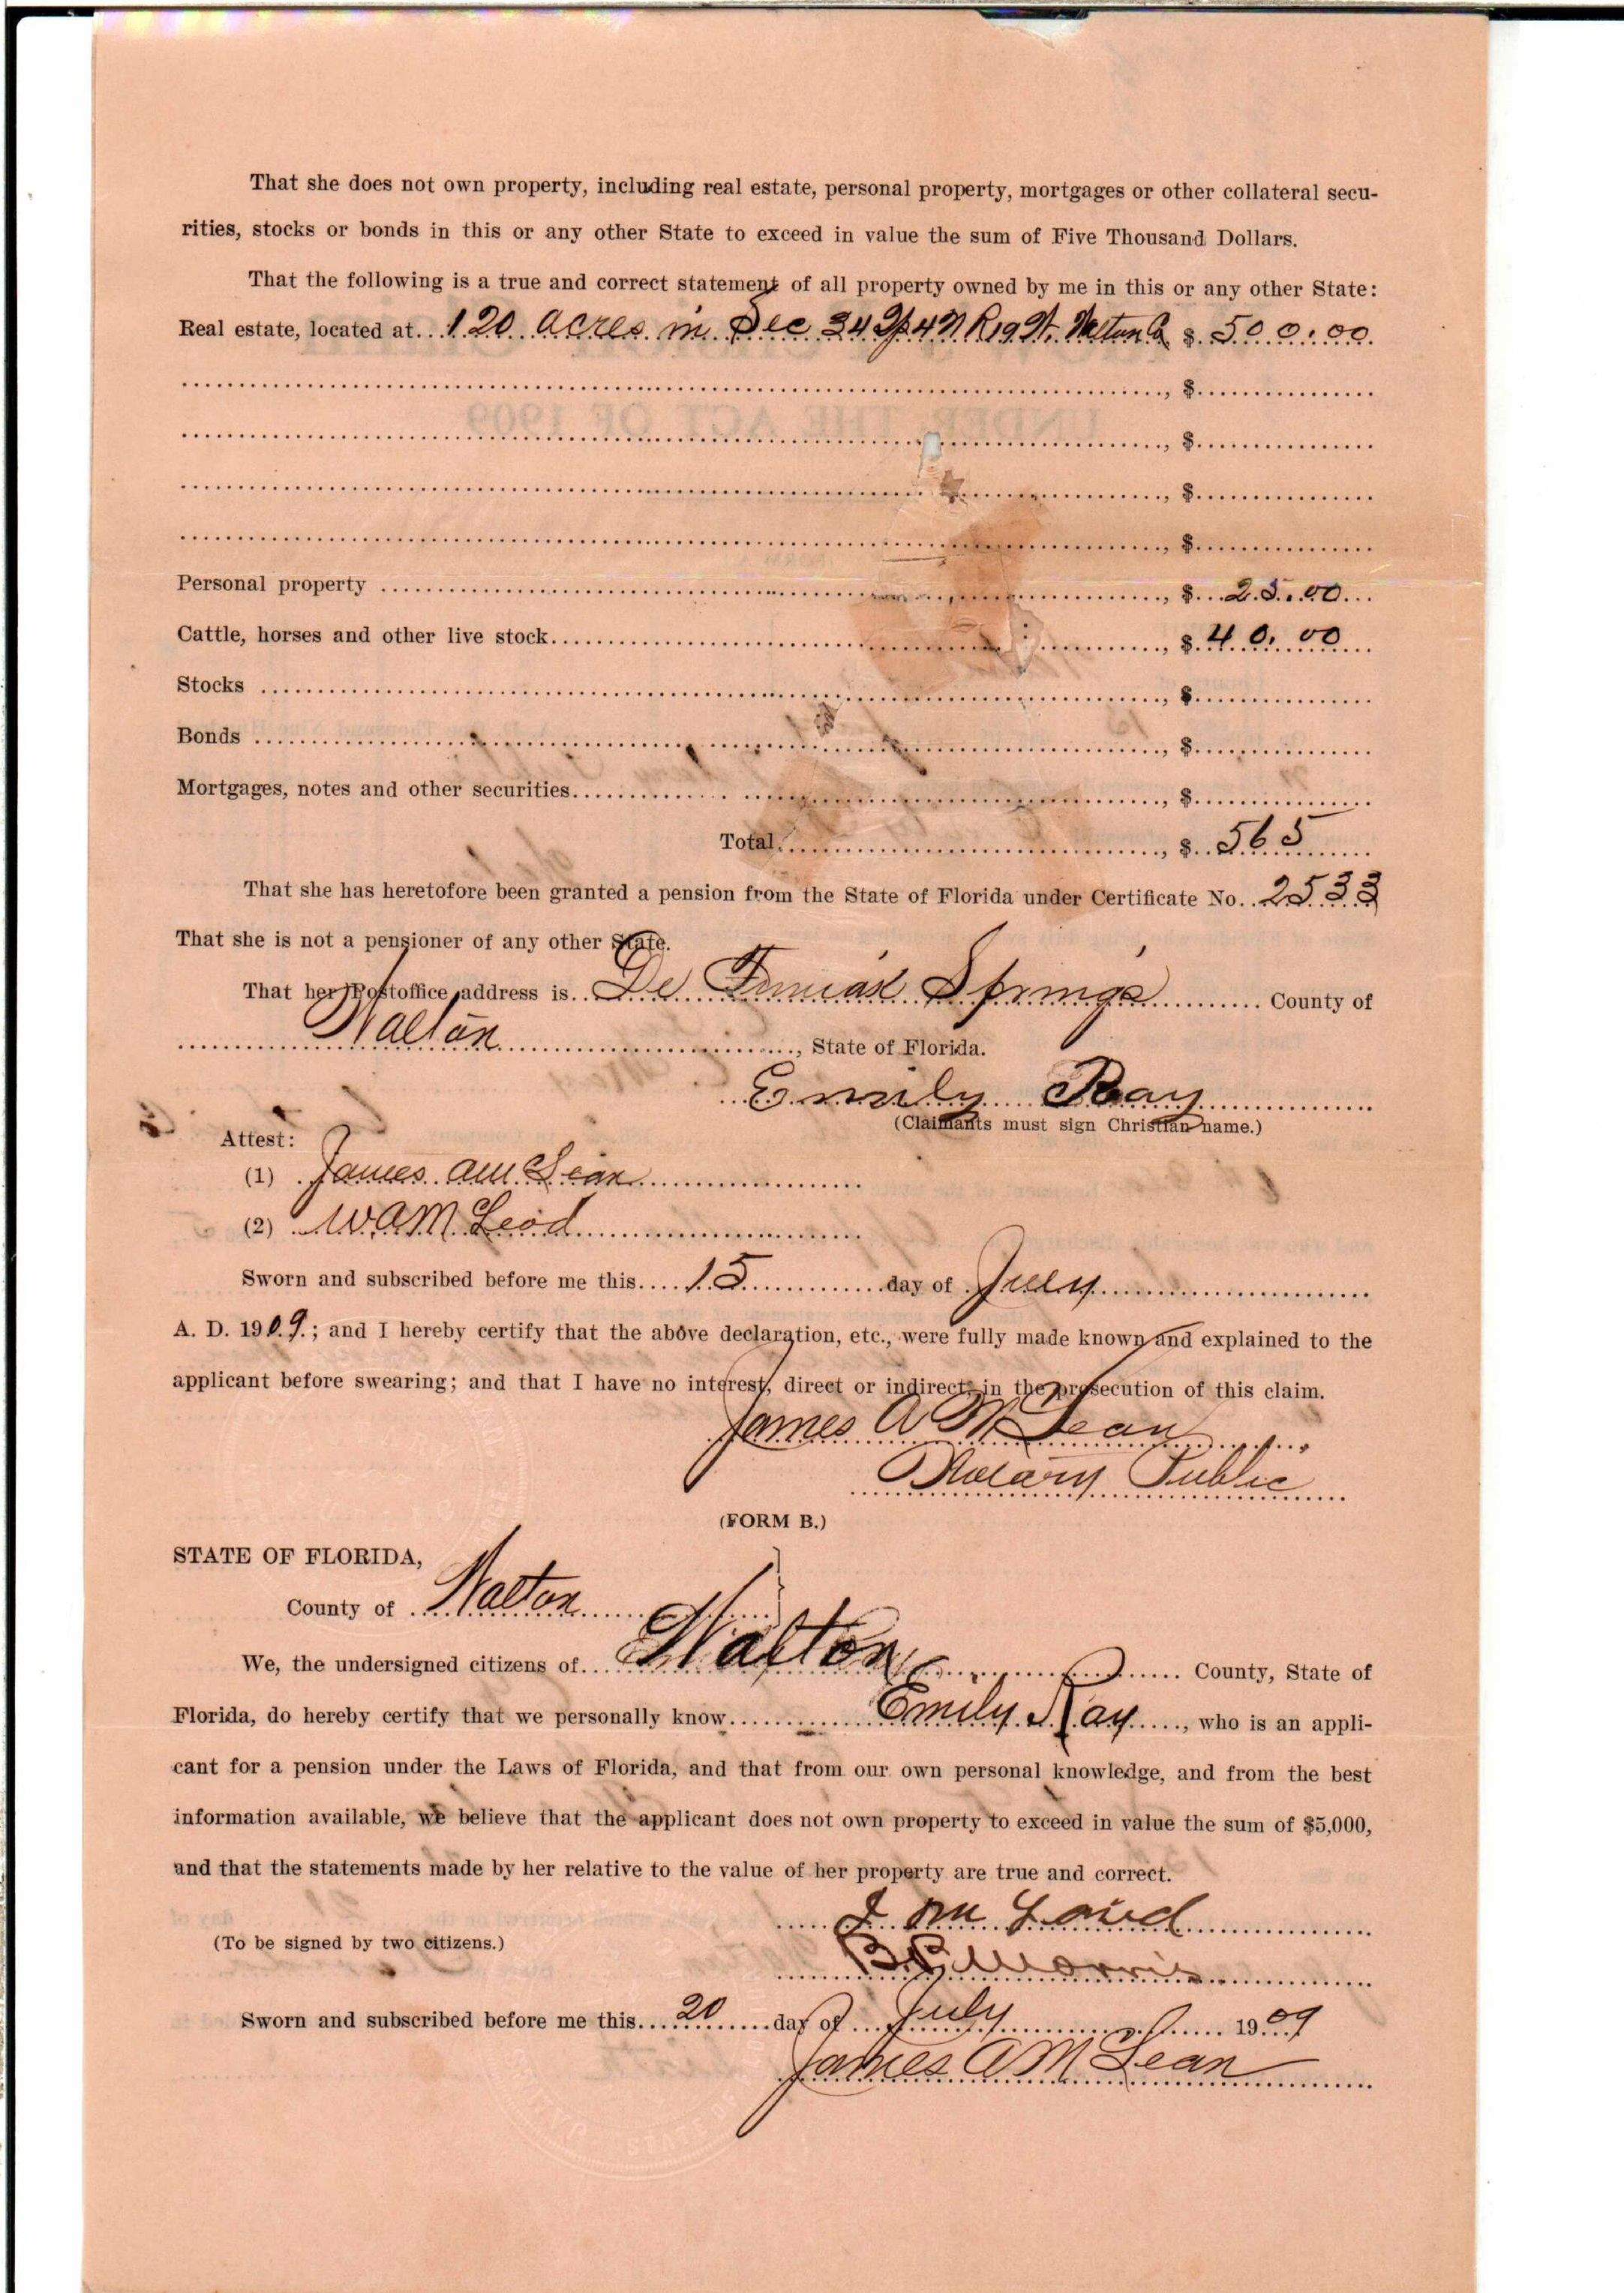 That she does not own property, including real estate, personal property, mortgages or other collateral secu-
rities, stocks or bonds in this or any other State to exceed in value the sum of Five Thousand Dollars.
That the following is a true and correct statement of all property owned by me in this or any other State:
Real estate, located at 120 acres in Sec 34 Tp 4 N R 19 W. Walton Co $ 500.00
, $
, $
, $
, $
Personal property , $ 25.00
Cattle, horses and other live stock , $ 40.00
Stocks , $
Bonds , $
Mortgages, notes and other securities , $
Total , $ 565
That she has heretofore been granted a pension from the State of Florida under Certificate No. 2533
That she is not a pensioner of any other State.
That her Postoffice address is De Funiak Springs County of
Walton , State of Florida.
Emily Ray
(Claimants must sign Christian name.)
Attest:
(1) James A McLean
(2) W A McLeod
Sworn and subscribed before me this 15 day of July
A. D. 1909.; and I hereby certify that the above declaration, etc., were fully made known and explained to the
applicant before swearing; and that I have no interest, direct or indirect, in the prosecution of this claim.
James A McLean
Notary Public
(FORM B.)
STATE OF FLORIDA,
County of Walton
We, the undersigned citizens of Walton County, State of
Florida, do hereby certify that we personally know Emily Ray , who is an appli-
cant for a pension under the Laws of Florida, and that from our own personal knowledge, and from the best
information available, we believe that the applicant does not own property to exceed in value the sum of $5,000,
and that the statements made by her relative to the value of her property are true and correct.
J M Laird
(To be signed by two citizens.)
B. B. Morris
Sworn and subscribed before me this 20 day of July 1909
James A McLean
UNDER THE ACT OF 1909